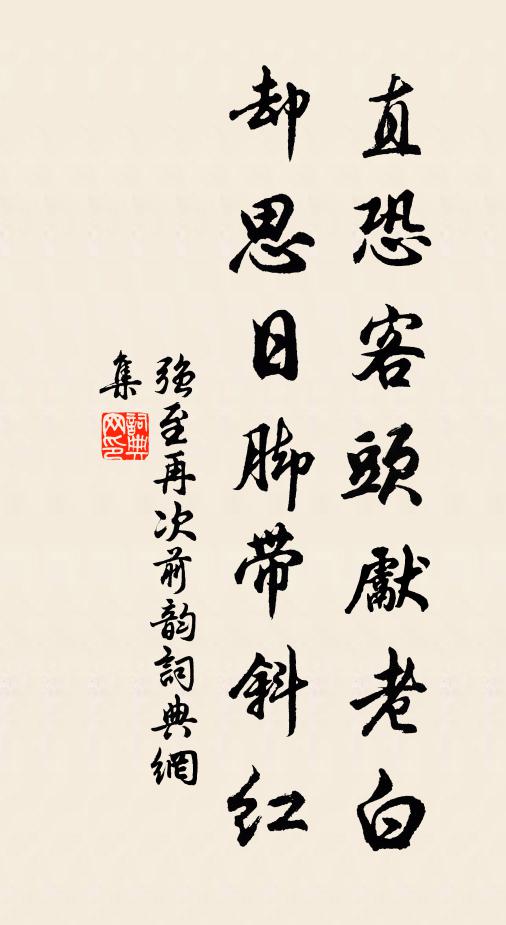 直恐客頭獻老白
却思日脚帶斜紅
强至再次前韵詞典網
集
詞典網印